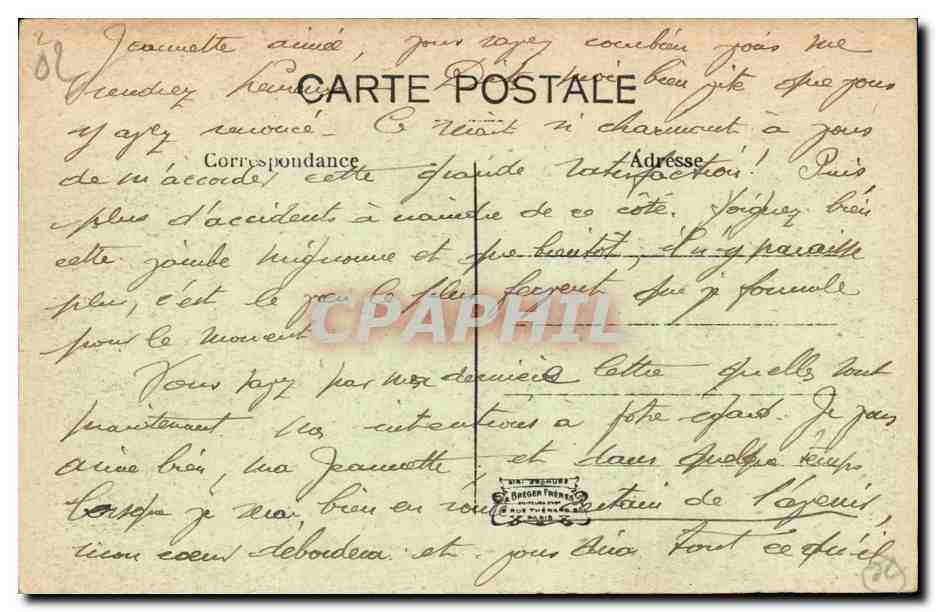 Jeannette aimée, vous savez combien vous me
CARTE POSTALE
rendrez heureux Dites moi bien vite que vous
y avez renoncé. Ce serait si charmant à vous
Correspondance
Adresse
de m'accorder cette grande satisfaction! Puis
plus d'accidents à craindre de ce côté. Soignez bien
cette jambe mignonne et que bientôt, il n'y paraisse
plus, c'est le vœu le plus fervent que je formule
CPAPHIL
pour le moment
Vous savez par mes dernières lettre quelles sont
maintenant mes intentions à votre égard. Je vous
aime bien, ma Jeannette, et dans quelque temps
BREGER FRÈRES
RUE THÉNARD
PARIS
lorsque je serai bien en certain de l'avenir,
mon cœur débordera et vous dira tout ce qu'il